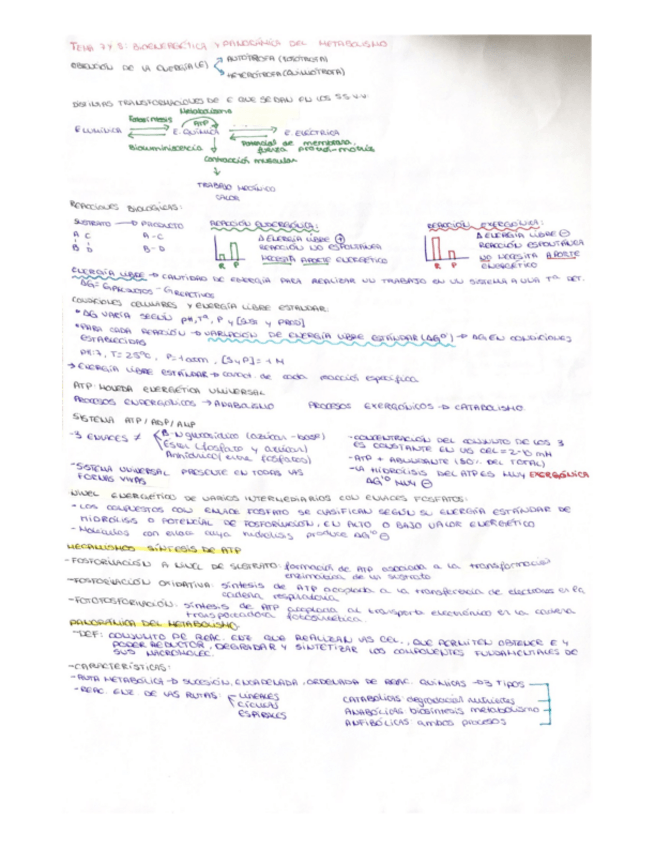 TEMA 7 Y 8: BIOENERGÉTICA Y PANORÁMICA DEL METABOLISMO
OBTENCIÓN DE LA ENERGÍA (E)
AUTÓTROFA (FOTÓTROFA)
HETERÓTROFA (QUIMIÓTROFA)
DISTINTAS TRANSFORMACIONES DE E QUE SE DAN EN LOS SS.VV:
Metabolismo
Fotosíntesis
ATP
E LUMÍNICA E. QUÍMICA E. ELÉCTRICA
Bioluminiscencia
Potencial de membrana,
fuerza protón-motriz
Contracción muscular
TRABAJO MECÁNICO
CALOR
REACCIONES BIOLÓGICAS:
SUSTRATO → PRODUCTO
A C A-C
B D B-D
REACCIÓN ENDERGÓNICA:
Δ ENERGÍA LIBRE ⊕
REACCIÓN NO ESPONTÁNEA
NECESITA APORTE ENERGÉTICO
R P
REACCIÓN EXERGÓNICA:
Δ ENERGÍA LIBRE ⊖
REACCIÓN ESPONTÁNEA
NO NECESITA APORTE
ENERGÉTICO
R P
ENERGÍA LIBRE → CANTIDAD DE ENERGÍA PARA REALIZAR UN TRABAJO EN UN SISTEMA A UNA Tª DET.
ΔG = GPRODUCTOS - GREACTIVOS
CONDICIONES CELULARES Y ENERGÍA LIBRE ESTÁNDAR:
* ΔG VARÍA SEGÚN pH, Tª, P Y [SUST Y PROD]
* PARA CADA REACCIÓN → VARIACIÓN DE ENERGÍA LIBRE ESTÁNDAR (ΔG'º) → ΔG EN CONDICIONES
ESTABLECIDAS
pH: 7, T = 25ºC, P = 1 atm, [S y P] = 1 M
→ ENERGÍA LIBRE ESTÁNDAR → caract. de cada reacción específica
ATP: MONEDA ENERGÉTICA UNIVERSAL
PROCESOS ENDERGÓNICOS → ANABOLISMO PROCESOS EXERGÓNICOS → CATABOLISMO
SISTEMA ATP/ADP/AMP
- 3 ENLACES ≠
B-N glucosídico (azúcar-base)
Éster (fosfato y azúcar)
Anhídrido (entre fosfatos)
- SISTEMA UNIVERSAL PRESENTE EN TODAS LAS
FORMAS VIVAS
- CONCENTRACIÓN DEL CONJUNTO DE LOS 3
ES CONSTANTE EN LAS CEL = 2-10 mM
- ATP + ABUNDANTE (80% DEL TOTAL)
- LA HIDRÓLISIS DEL ATP ES MUY EXERGÓNICA
ΔG'º MUY ⊖
NIVEL ENERGÉTICO DE VARIOS INTERMEDIARIOS CON ENLACES FOSFATOS:
- LOS COMPUESTOS CON ENLACE FOSFATO SE CLASIFICAN SEGÚN SU ENERGÍA ESTÁNDAR DE
HIDRÓLISIS O POTENCIAL DE FOSFORILACIÓN, EN ALTO O BAJO VALOR ENERGÉTICO
- Moléculas con enlace cuya hidrólisis produce ΔG'º ⊖
MECANISMOS SÍNTESIS DE ATP
- FOSFORILACIÓN A NIVEL DE SUSTRATO: formación de ATP asociada a la transformación
enzimática de un sustrato
- FOSFORILACIÓN OXIDATIVA: síntesis de ATP acoplada a la transferencia de electrones en la
cadena respiratoria
- FOTOFOSFORILACIÓN: síntesis de ATP acoplada al transporte electrónico en la cadena
transportadora fotosintética.
PANORÁMICA DEL METABOLISMO
- DEF: CONJUNTO DE REAC. ENZ QUE REALIZAN LAS CEL, QUE PERMITEN OBTENER E Y
PODER REDUCTOR, DEGRADAR Y SINTETIZAR LOS COMPONENTES FUNDAMENTALES DE
SUS MACROMOLEC.
- CARACTERÍSTICAS:
- RUTA METABÓLICA → SUCESIÓN, ENCADENADA, ORDENADA DE REAC. QUÍMICAS → 3 TIPOS
- REAC. ENZ DE LAS RUTAS:
LINEALES
CÍCLICAS
ESPIRALES
CATABÓLICAS: degradación nutrientes
ANABÓLICAS: biosíntesis metabolismo
ANFIBÓLICAS: ambos procesos